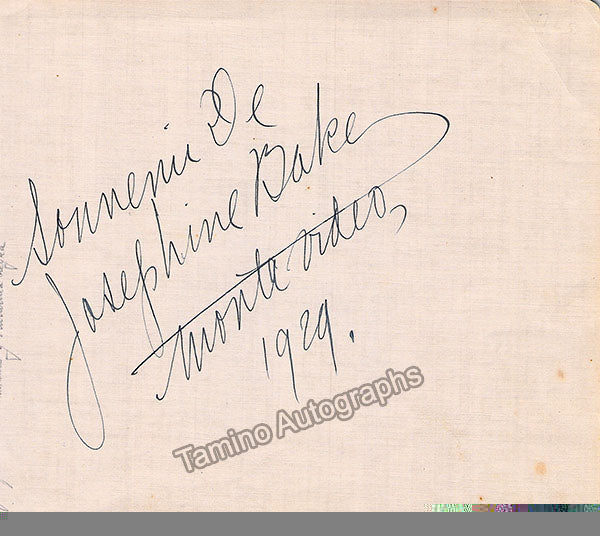 Souvenir De
Josephine Baker
Monte video,
1929.
Tamino Autographs